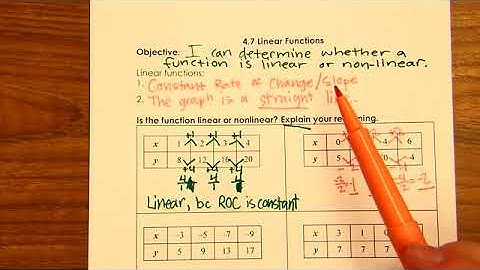 4.7 Linear Functions
Objective: I can determine whether a
function is linear or non-linear.
Linear functions:
1. Constant Rate of Change/Slope
2. The graph is a straight
Is the function linear or nonlinear? Explain your reasoning.
+1 +1 +1
x 1 2 3 4
y 8 12 16 20
+4 +4 +4
4/1 4/1 4/1
Linear, bc ROC is constant
x 0 4 6
y 5
-2
x -3 -5 -7 -9
y 5 9 13 17
x 3 1
y 7 7 7